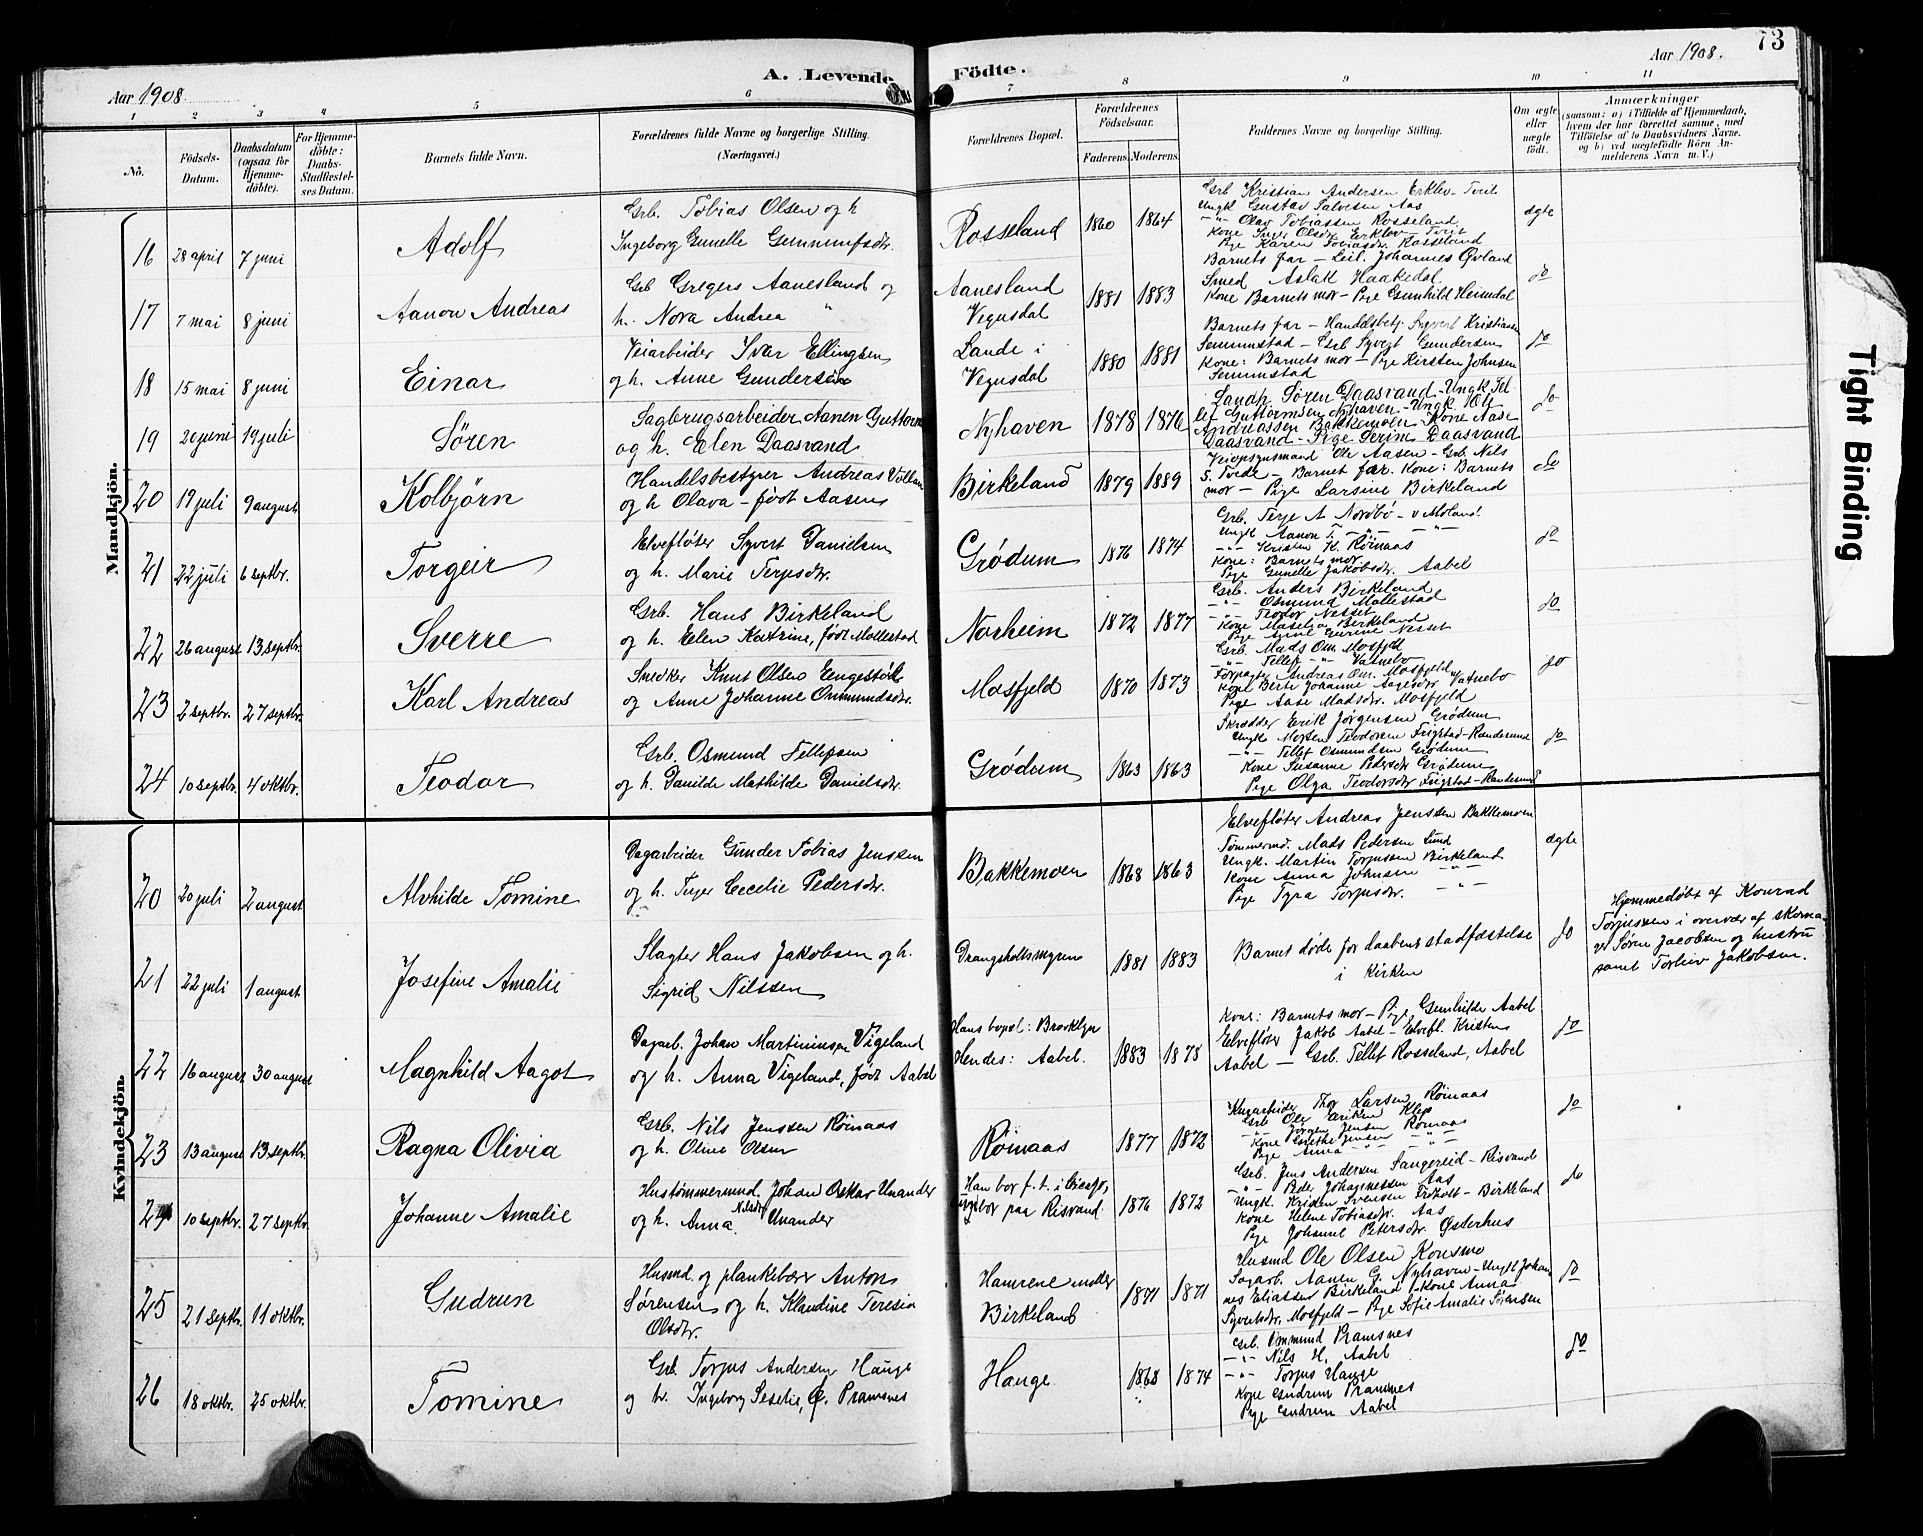 Aar 1908.
A. Levende Födte.
Aar 1908.
73
1 2 3 4 5 6 7 8 9 10 11
No.
Födsels-Datum.
Daabsdatum (ogsaa for Hjemmedöbte).
For Hjemmedöbte: Daabs-Stadfæstelses Datum.
Barnets fulde Navn.
Forældrenes fulde Navne og borgerlige Stilling.
(Næringsvei.)
Forældrenes Bopæl.
Forældrenes Födselsaar.
Faderens. Moderens.
Faddernes Navne og borgerlige Stilling.
Om ægte eller uægte födt.
Anmærkninger
(saasom: a) i Tilfælde af Hjemmedaab, hvem der har forrettet samme, med Tilföielse af to Daabsvidners Navne. og b) ved uægtefödte Börn Anmelderens Navn m. V.)
Mandkjön.
16 28 april 7 juni Adolf
Grb. Tobias Olsen og h
Ingeborg Gunelle Gummufsdtr.
Rosseland 1860 1864
Grb Kristian Andersen Erklev - Tveit
Ungk Gustav Salvesen Aas
-"- Olav Tobiassen Rosseland
Kone Inger Olsdtr Erklev Tveit
Pige Karen Tobiasdtr. Rosseland
ægte
17 7 mai 8 juni Aanon Andreas
Grb Gregers Aanesland og
h. Nora Andrea "
Aanesland
Vegusdal
1881 1883
Barnets far - Leil. Johannes Øvland
Smed Aslak Haakedal
Kone Barnets mor - Pige Gunhild Heimdal
do
18 15 mai 8 juni Einar
Veiarbeider Ivar Ellingsen
og h. Anne Gundersen
Lande i
Vegusdal
1880 1881
Barnets far - Handelsbetj. Syvert Kristiansen
Senumstad - Grb Syvert Gundersen
Kone: Barnets mor - Pige Kirsten Johnsen
Senumstad
do
19 20 juni 19 juli Sören
Sagbrugsarbeider Aanen Guttorms
og h. Elen Daasvand
Nyhaven 1878 1876
Landh. Sören Daasvand - Ungk
Guttormsen Nyhaven - Ungk
Andreassen Bakkemoen - Kone Aase
Daasvand - Pige Serine Daasvand
do
20 19 juli 9 august Kolbjörn
Handelsbestyrer Andreas Vollan
og h Olava - født Aasen
Birkeland 1879 1889
Veiopsynsmand Ole Aasen - Grb. Nils
S. Tveide - Barnet far. Kone: Barnets
mor - Pige Larsine Birkeland
do
21 22 juli 6 septbr. Torgeir
Elvefløter Syvert Danielsen
og h. Marie Terjesdtr.
Grødum 1876 1874
Grb. Terje A Nordbø - v Moland.
Ungk Aanon T. -"- -"-
-"- Kristen K. Römaas
Kone: Barnets mor
Pige Gunelle Jakobsdtr. Aabel
do
22 26 august 13 septbr. Sverre
Grb. Hans Birkeland
og h. Elen Katrine, født Mollestad
Norheim 1872 1877
Grb. Anders Birkeland
-"- Osmund Mollestad
-"- Teodor Nesset
Birkeland
Pige Anne Gurine Nesset
do
23 2 septbr. 27 septbr. Karl Andreas
Snedker Knut Olsen Engestöl
og Anne Johanne Ommundsdtr.
Mosfjeld 1870 1873
Grb. Mads Om. Mosfjeld
-"- Tellef -"- Vatnebo
Forpagter Andreas Om. Mosfjeld
Kone Berte Johanne Aagesdtr Vatnebo
Pige Aase Madsdtr. Mosfjeld
do
24 10 septbr. 4 oktbr. Teodor
Grb. Osmund Tellefsen
og h. Danilde Mathilde Danielsdtr.
Grødum 1863 1863
Skrædder Erik Jørgensen Grødum
Ungk. Morten Teodorsen Frigstad - Randesund
-"- Tellef Osmundsen Grødum
Kone Susanne Pedersdtr Grødum
Pige Olga Teodorsdtr Frigstad - Randesund
do
Kvindekjön.
20 20 juli 2 august Alvhilde Tomine
Dagarbeider Gunder Tobias Jenssen
og h. Inger Cecelie Pedersdtr.
Bakkemoen 1868 1863
Elvefløter Andreas Jenssen Bakkemoen
Tømmermd. Mads Pedersen Lund
Ungk. Martin Torjussen Birkeland
Kone Anna Johnsen -"-
Pige Tyra Torjusdtr. -"-
ægte
21 22 juli 1 august Josefine Amalie
Slagter Hans Jakobsen og h.
Sigrid Nilssen
Drangsholtsmyrene 1881 1883
Barnet døde før daabens stadfæstelse
i kirken
do
Hjemmedøbt af Konrad
Torjussen i overvær af skoma-
ger Sören Jacobsen og hustru
samt Torleiv Jakobsen.
22 16 august 30 august Magnhild Aagot
Dagarb. Johan Martiniusen Vigeland
og h. Anna Vigeland, født Aabel
Hans bopæl: Brooklyn
Hendes: Aabel.
1883 1878
Kone: Barnets mor - Pige Gunhilde Aabel
Elvefløter Jakob Aabel - Elvefl. Kristen
Aabel - Grb. Tellef Rosseland, Aabel
do
23 13 august 13 septbr. Ragna Olivia
Grb. Nils Jenssen Römaas
og h. Oline Olsen
Römaas 1877 1872
Thor Larsen Römaas
Grb Ole Eriksen Klep
-"- Jørgen Jensen Römaas
Kone Grethe Jensen -"-
Pige Anna -"- -"-
do
24 10 septbr. 27 septbr Johanne Amalie
Hustømmermd. Johan Oskar Unander
og h. Anna Nilsdtr Unander
Han bor f. t. i Chicago,
hun bor paa Risvand.
1876 1872
Grb. Jens Andersen Sangereid - Risvand
-"- Peder Johannessen Aas
Ungk. Kristen Svensen Frøholt - Birkeland
Kone Helene Tobiasdtr. Aas
Pige Johanne Petersdtr. Østerhus
do
25 21 septbr. 11 oktbr. Gudrun
Husmd. og plankebær Anton
Sørensen og h. Klaudine Teresia
Olsdtr.
Hamrene under
Birkeland
1871 1871
Husmd Ole Olsen Konsmo
Sagarb. Aanen G. Nyhaven - Ungk Johan-
nes Eliassen Birkeland - Kone Anna
Syvertsdtr. Mosfjeld - Pige Sofie Amalie Sörensen
do
26 18 oktbr. 25 oktbr. Tomine
Grb. Torjus Andersen Hauge
og h. Ingeborg Seselie, f. Pramsnes
Hauge 1868 1874
Grb. Ommund Pramsnes
-"- Nils H. Aabel
-"- Torjus Hauge
Kone Gudrun Pramsnes
Pige Gudrun Aabel
do
Tight Binding